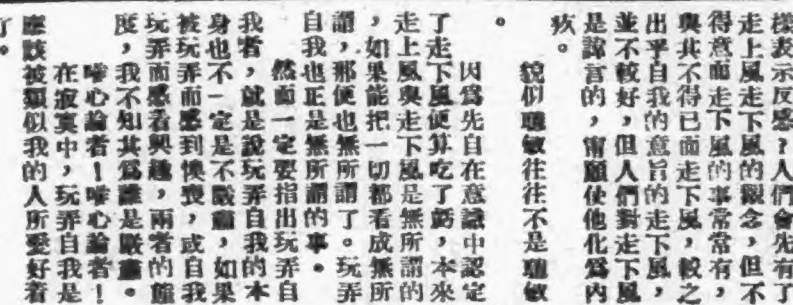 樣表示反感?人們會先有了
走上風走下風的觀念,但不
得意而走下風的事常常有,
與其不得已而走下風,較之
出乎自我的意旨的走下風,
並不較好,但人們對走下風
是諱言的,甯願使他化爲內
疚。
貌似聰敏往往不是聰敏
。
因爲先自在意識中認定
了走下風便算吃了虧,本來
走上風與走下風是無所謂的
,如果能把一切都看成無所
謂,那便也無所謂了。玩弄
自我也正是無所謂的事。
然而一定要指出玩弄自
我者,就是說玩弄自我的本
身也不一定是不嚴肅,如果
被玩弄而感到懊喪,或自我
玩弄而感着興趣,兩者的態
度,我不知其爲誰是嚴肅。
唯心論者!唯心論者!
在寂寞中,玩弄自我是
應該被類似我的人所愛好着
了。